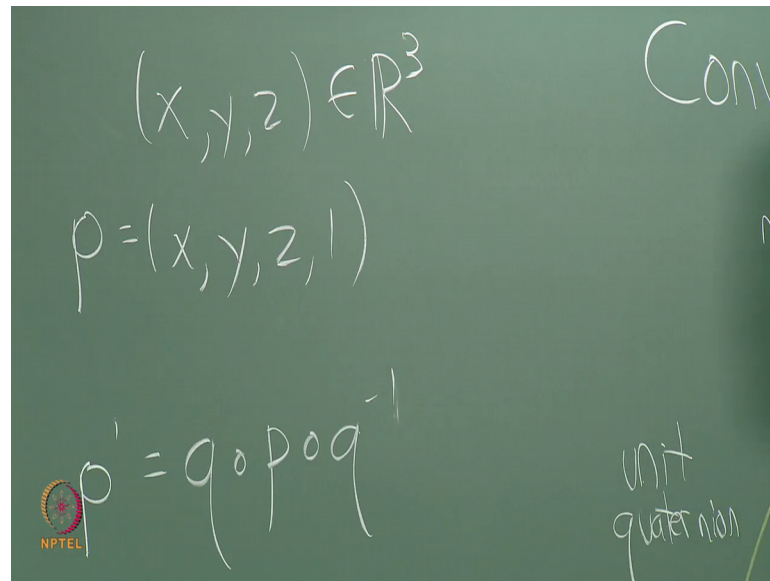 (x, y, z) ∈ ℝ³
Conv
p = (x, y, z, 1)
p' = q ∘ p ∘ q⁻¹
unit
quaternion
NPTEL